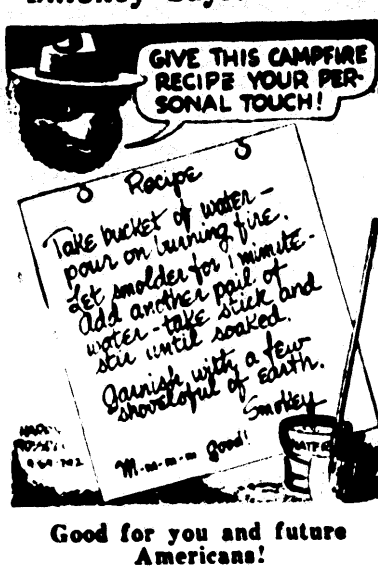 Smokey Says:
GIVE THIS CAMPFIRE
RECIPE YOUR PER-
SONAL TOUCH!
Recipe
Take bucket of water -
pour on burning fire.
Let smolder for 1 mimite.
Add another pail of
water - take stick and
stir until soaked.
Garnish with a few
shovelsful of earth.
Smokey
M-m-m-m good!
WATER
Good for you and future
Americans!